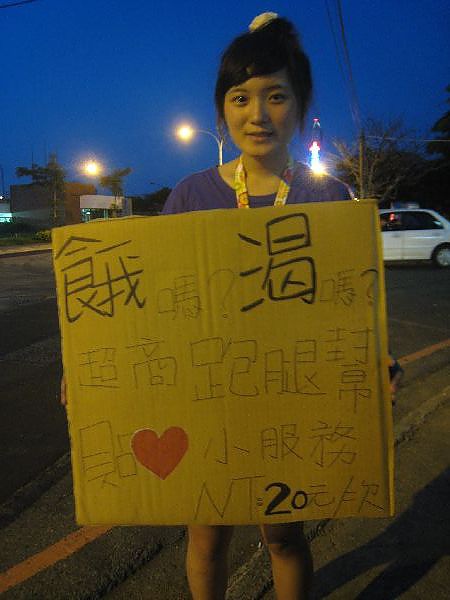 餓嗎？渴嗎？
超商跑腿幫
貼♥小服務
NT:20元/次